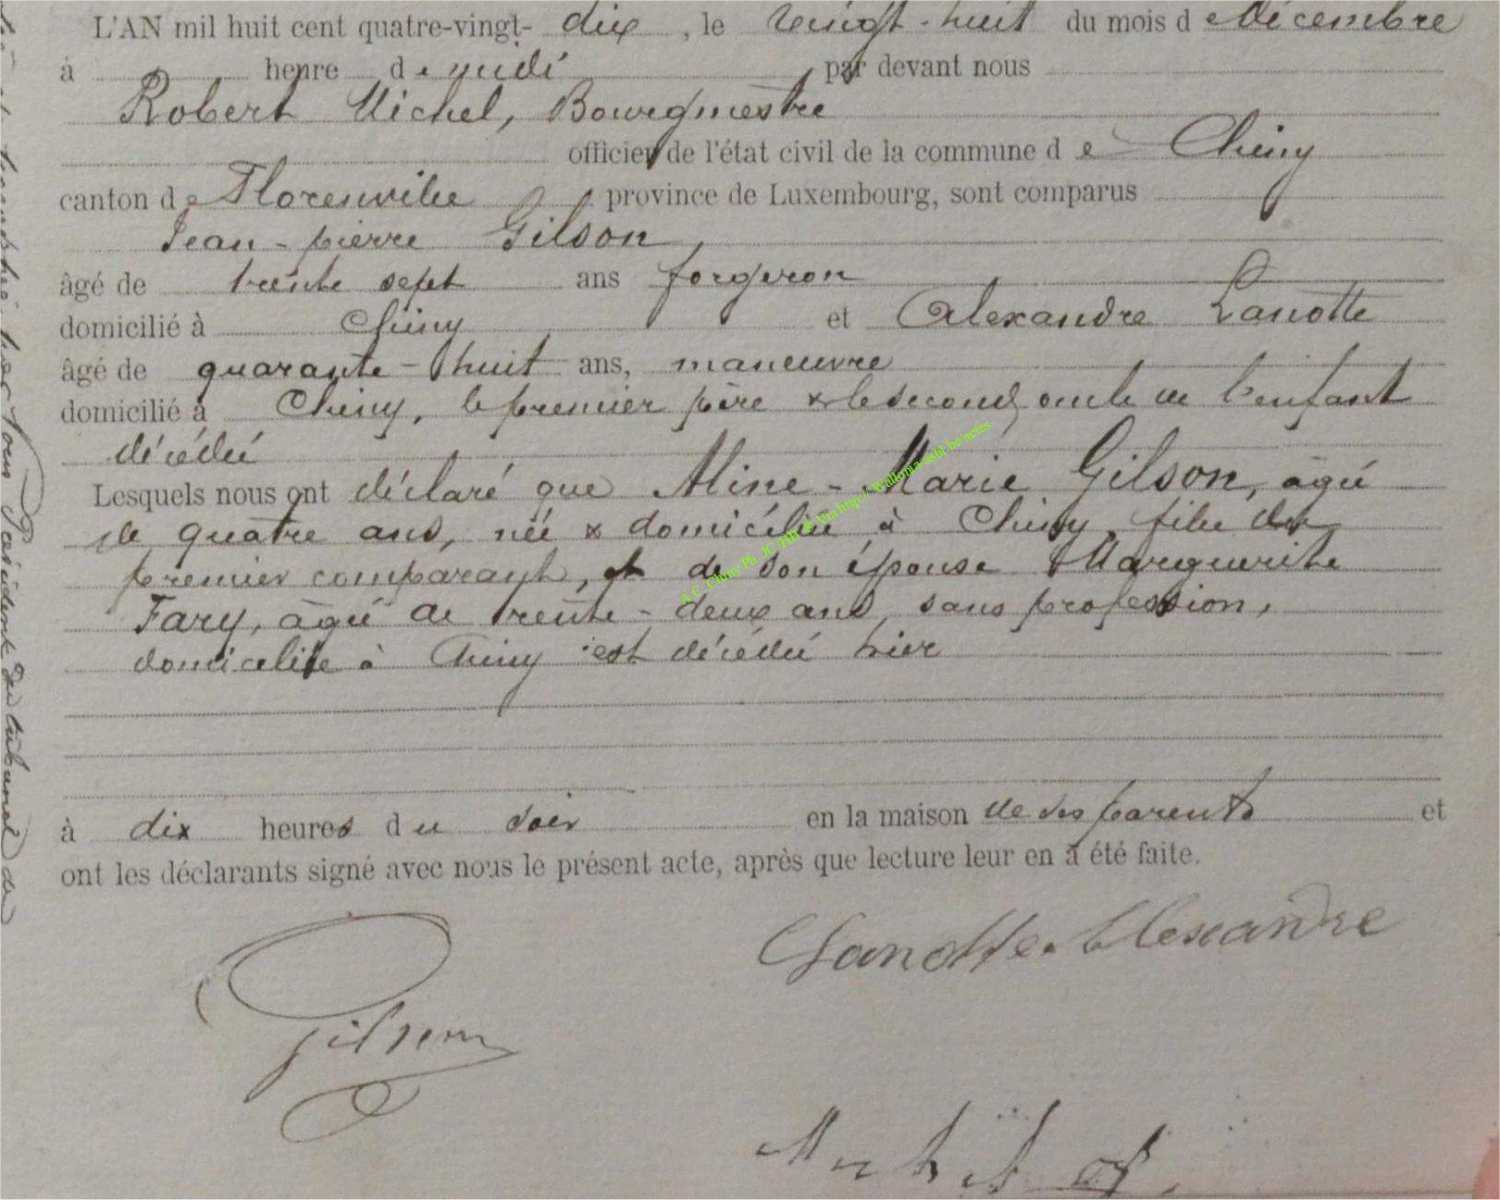 L'AN mil huit cent quatre-vingt- dix, le vingt-huit du mois d e décembre
à heure d e midi par devant nous
Robert Michel, Bourgmestre
officier de l'état civil de la commune d e Chiny
canton d e Florenville province de Luxembourg, sont comparus
Jean-pierre Gilson,
âgé de trente sept ans forgeron
domicilié à Chiny et Alexandre Lanotte
âgé de quarante-huit ans, manœuvre
domicilié à Chiny, le premier père & le second oncle de l'enfant
décédé
Lesquels nous ont déclaré que Aline-Marie Gilson, âgé
de quatre ans, née & domiciliée à Chiny, fille du
premier comparant, et de son épouse Marguerite
Fary, âgé de trente-deux ans, sans profession,
domicilié à Chiny est décédé hier
à dix heures d u soir en la maison de ses parents et
ont les déclarants signé avec nous le présent acte, après que lecture leur en a été faite.
Lanotte Alexandre
Gilson
par nous Président du tribunal de